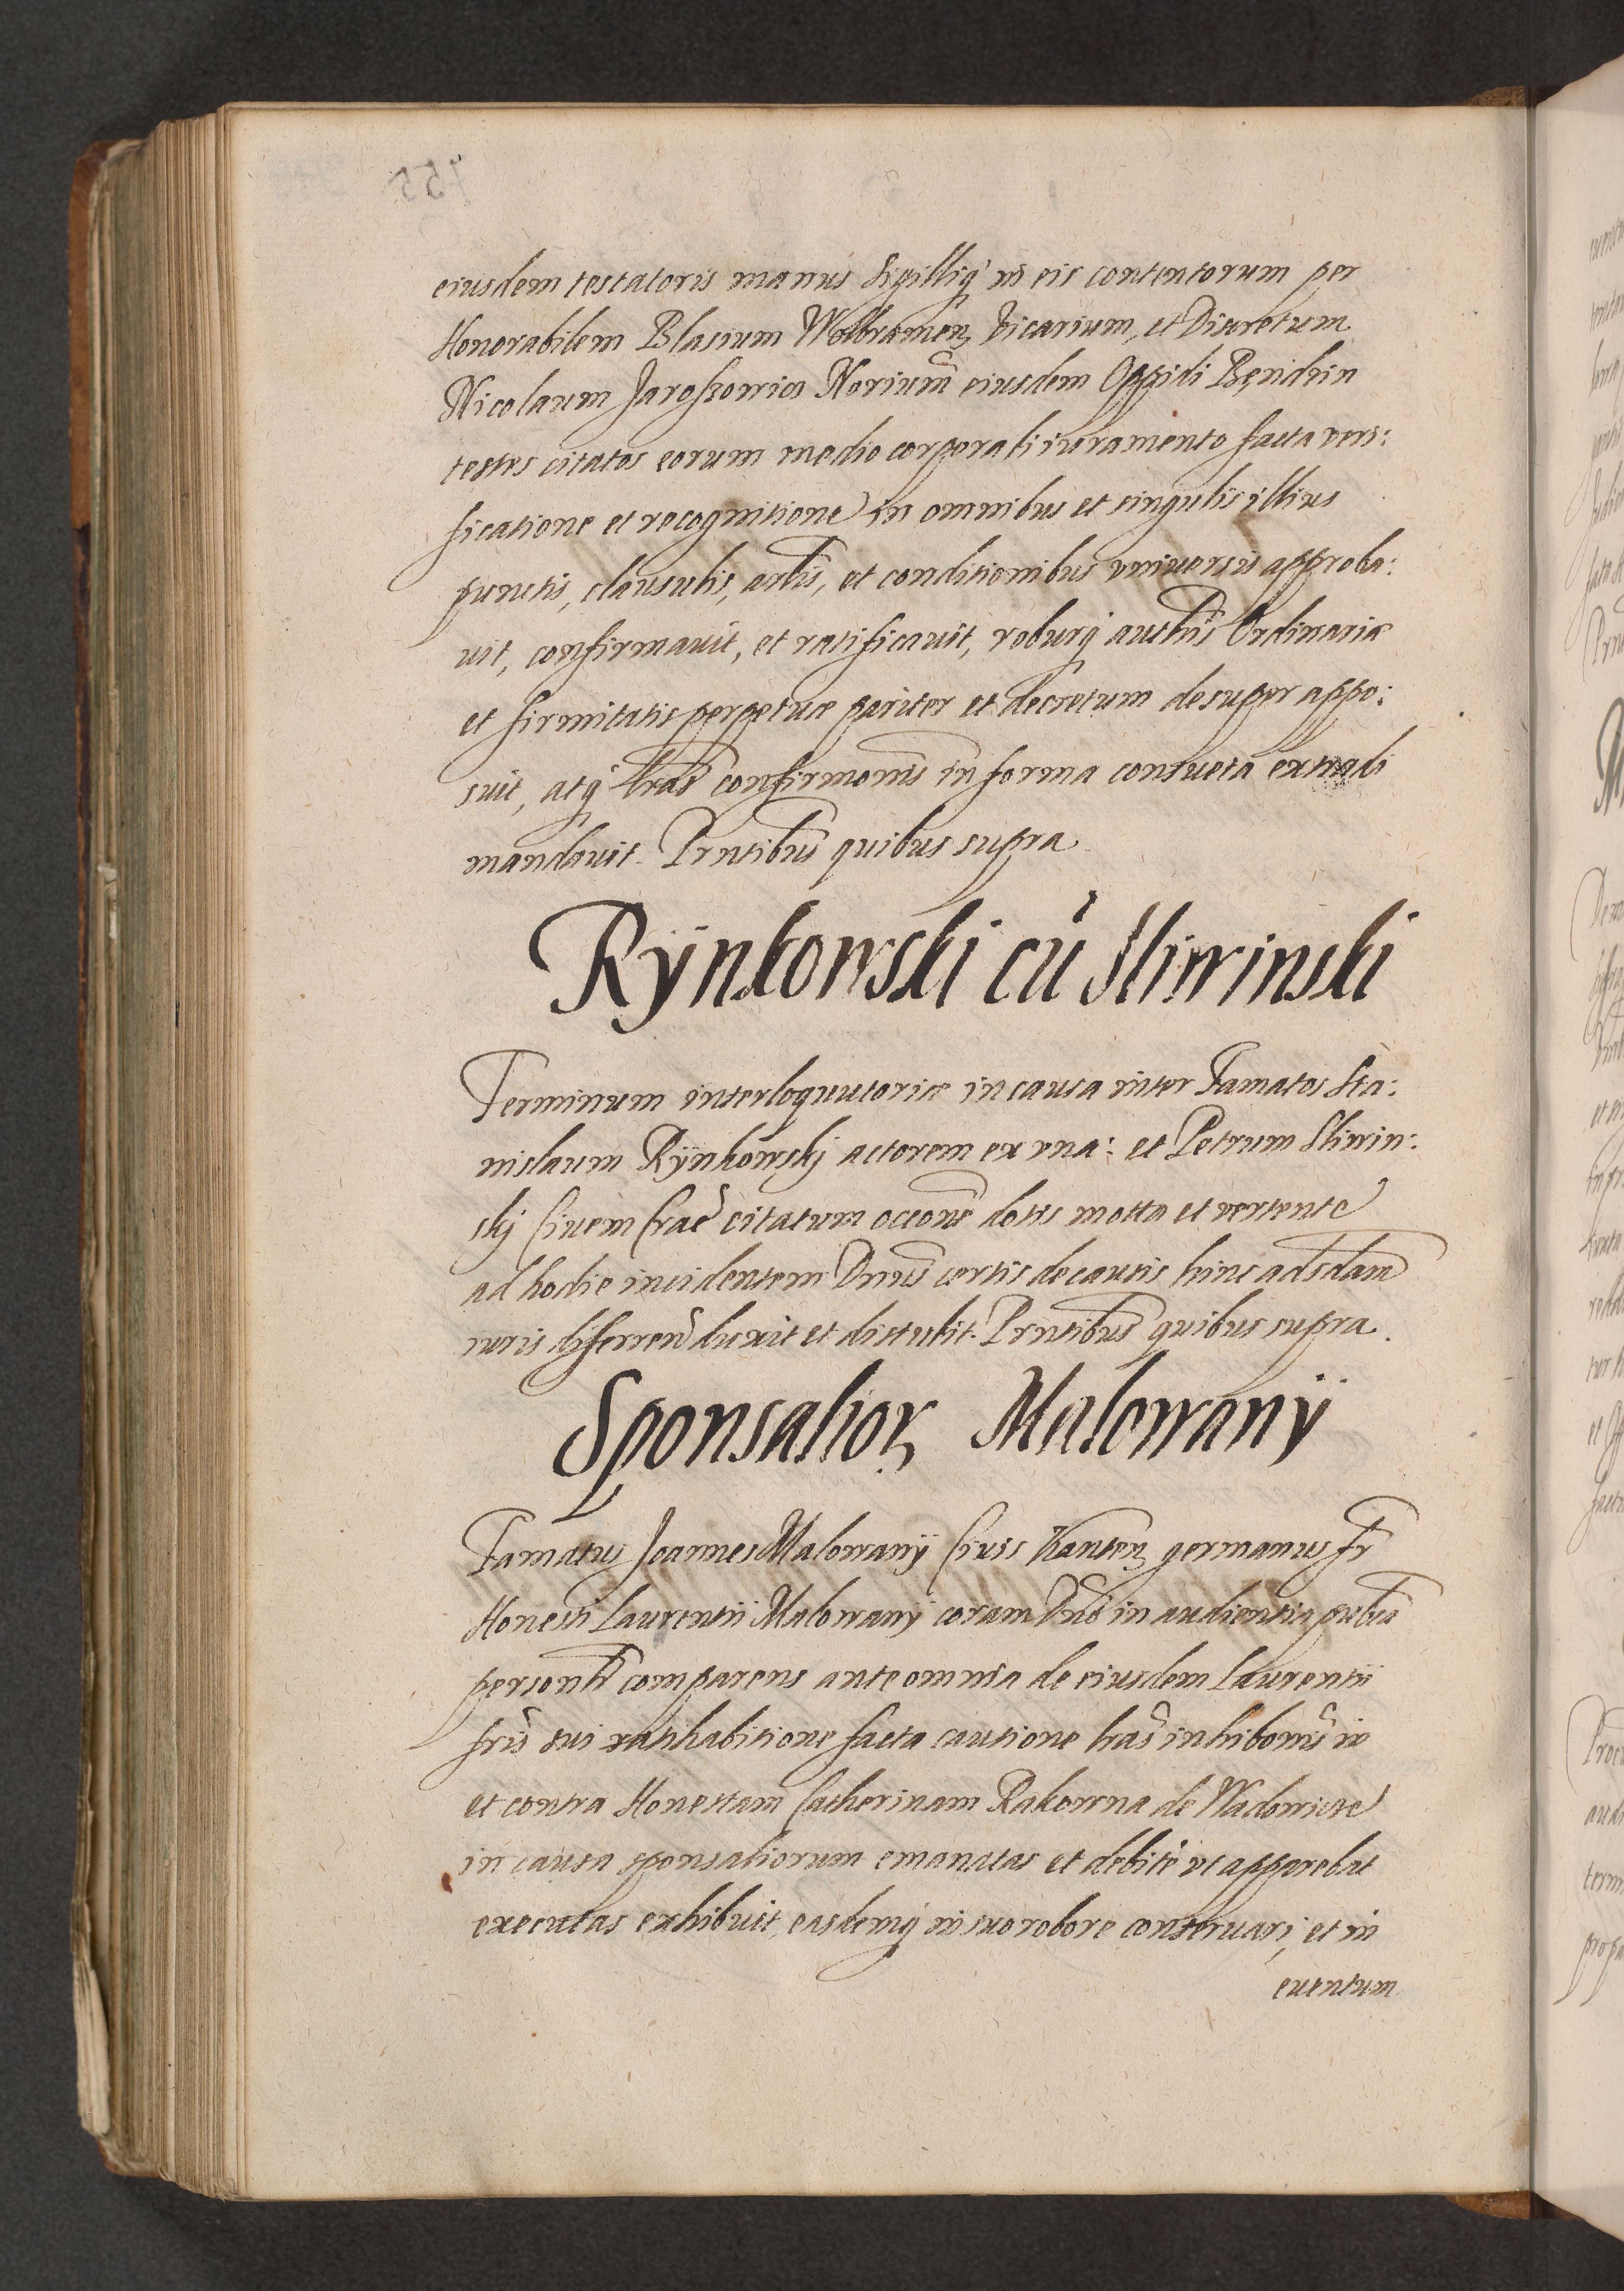 eiusdem testatoris manus sigilliq' in eis contentorum per
Honorabilem Blasium Wolbramen Vicarium, et Discretum
Nicolaum Jaroszowicz Norium eiusdem Oppidi Bendzin
testes citatos eorum medio corporali iuramento facta veri:
ficatione et recognitione in omnibus et singulis illius
punctis, clausulis, artlis, et conditionibus vniuersis approba:
uit, confirmauit, et ratificauit, roburq authtis Ordinariæ
et firmitatis perpetuæ pariter et decretum desuper appo:
suit, atq' lras confirmonis in forma consueta extradi
mandauit. Prntibus quibus supra
Rÿnkowski cū Sliwinski
Terminum interloquutoriæ in causa inter Famatos Sta:
nislaum Rÿnkowskj actorem ex vna: et Petrum Sliwin:
skj Ciuem Crac citatum occone dotis motta et vertente
ad hodie incidentem Dnus certis de causis hinc ad sdam
iuris differren duxit et distulit. Prntibus quibus supra.
Sponsalior Malowanÿ
Famatus Joannes Malowanÿ Ciuis Kanten germanus fr
Honesti Laurentii Malowanÿ coram Dno in audientia publica
personlr comparens ante omnia de eiusdem Laurentii
fris sui ratihabitione facta cautione lras inhibonis in
et contra Honestam Catherinam Rakowna de Wadowice
in causa sponsaliorum emanatas et debite vt apparebat
executas exhibuit, easdemq in suo robore conseruari, et in
euentum
755